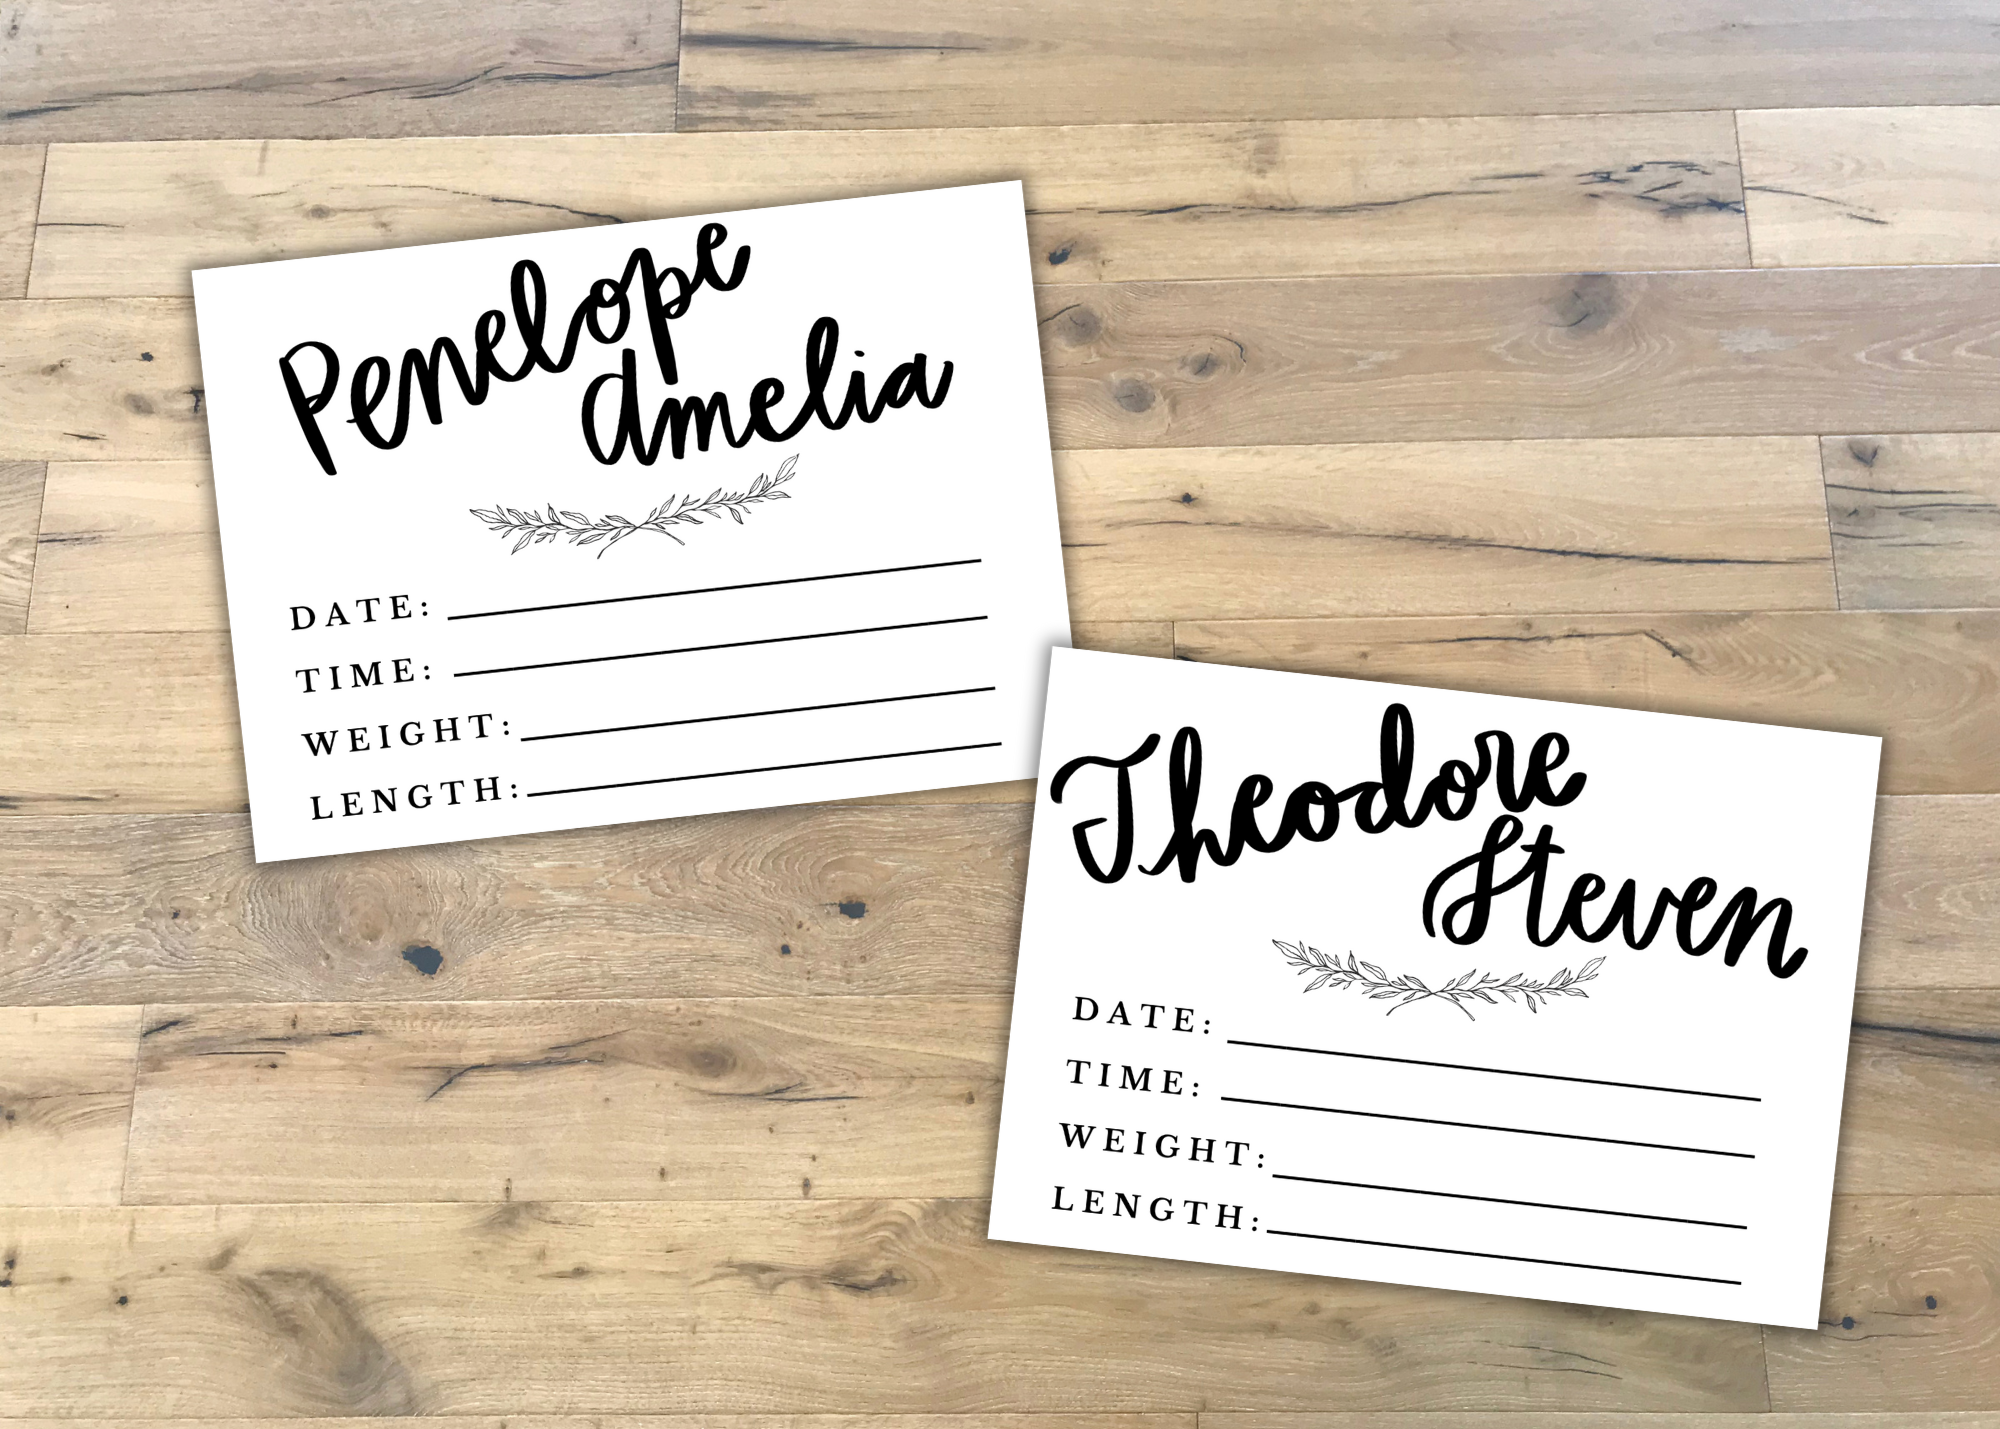 Penelope
Amelia
DATE:
TIME:
WEIGHT:
LENGTH:
Theodore
Steven
DATE:
TIME:
WEIGHT:
LENGTH: